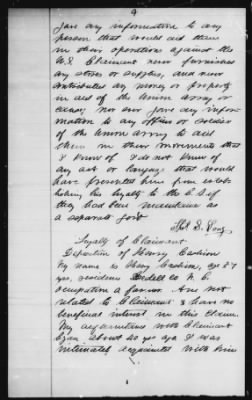 9
give any information to any
person that would aid them
in their operations against the
U.S. Claimant never furnished
any stores or supplies, and never
contributed any money or property
in aid of the Union army or
cause, nor ever gave any infor-
mation to any officer or soldier
of the Union army to aid
them in their movements that
I know of I do not know of
any act or language that would
have prevented him from estab-
lishing his loyalty to the C.S. if
they had been maintained as
a separate Govt
S.
Loyalty of Claimant
Deposition of Henry Cashion
My name is Henry Cashion, age 57
yrs, residence N.C.
occupation a farmer. Am not
related to Claimant & have no
beneficial interest in this claim.
My acquaintance with Claimant
began about 40 yrs ago I was
intimately acquainted with him